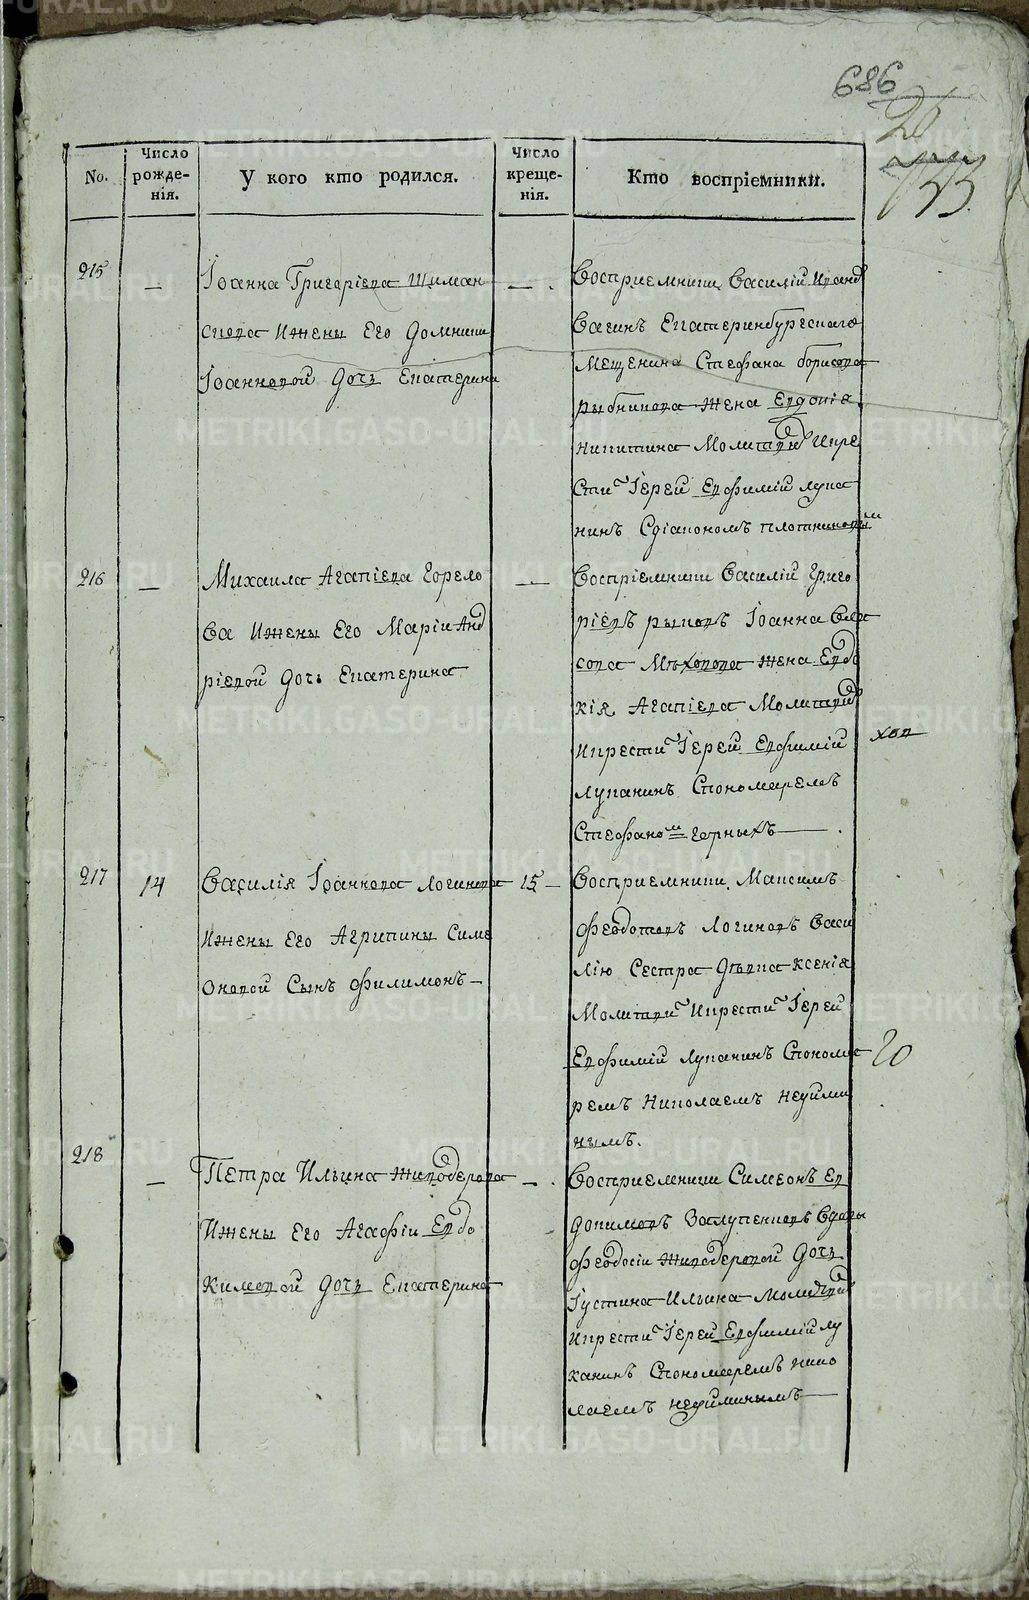 686
26
No.
Число
рожде-
нія.
У кого кто родился.
Число
креще-
нія.
Кто воспріемники.
215
Іоанна Григоріева Шиман
скова Ижены Его Домники
Іоанновой Дочь Екатерина
Восприемники Василій Иванов
Вагинъ Екатеринбургскаго
Мещенина Стефана борисова
рыбникова Жена Евдокія
никитина Молитвов Икре
сти Іерей Евфимій лука
нинъ Сдіакономъ плотниковым
216
Михаила Агапіева Горело
ва Ижены Его Маріи Анд
ріевой Дочь Екатерина
Воспріемники Василій Григо
ріевъ рыковъ Іоанна Влa
сова Мѣховова жена Евдо
кія Агапіева Молитвов
Икрести Іерей Евфимій
хов
луканинъ Спономаремъ
Стефаном Черныхъ
217
14
Василія Іоаннова Логинова
Ижены Его Агрипины Симе
оновой Сынъ Филимонъ
15
Восприемники Максимъ
Феодотовъ Логиновъ Васи
лію Сестра Дѣвка Ксенія
Молитви Икрести Іерей
Евфимій луканинъ Спонома
20
ремъ Николаемъ неуйми
нымъ.
218
Петра Ильина Живодерова
Ижены Его Агафіи Евдо
кимовой Дочь Екатерина
Восприемники Симеонъ Ев
докимовъ Заступенковъ Вдовы
Феодосіи Живодеровой Дочь
Густина Ильина Молитвов
Икрести Іерей Евфимій лу
канинъ Спономаремъ нико
лаемъ неуйминымъ
METRIKI.GASO-URAL.RU